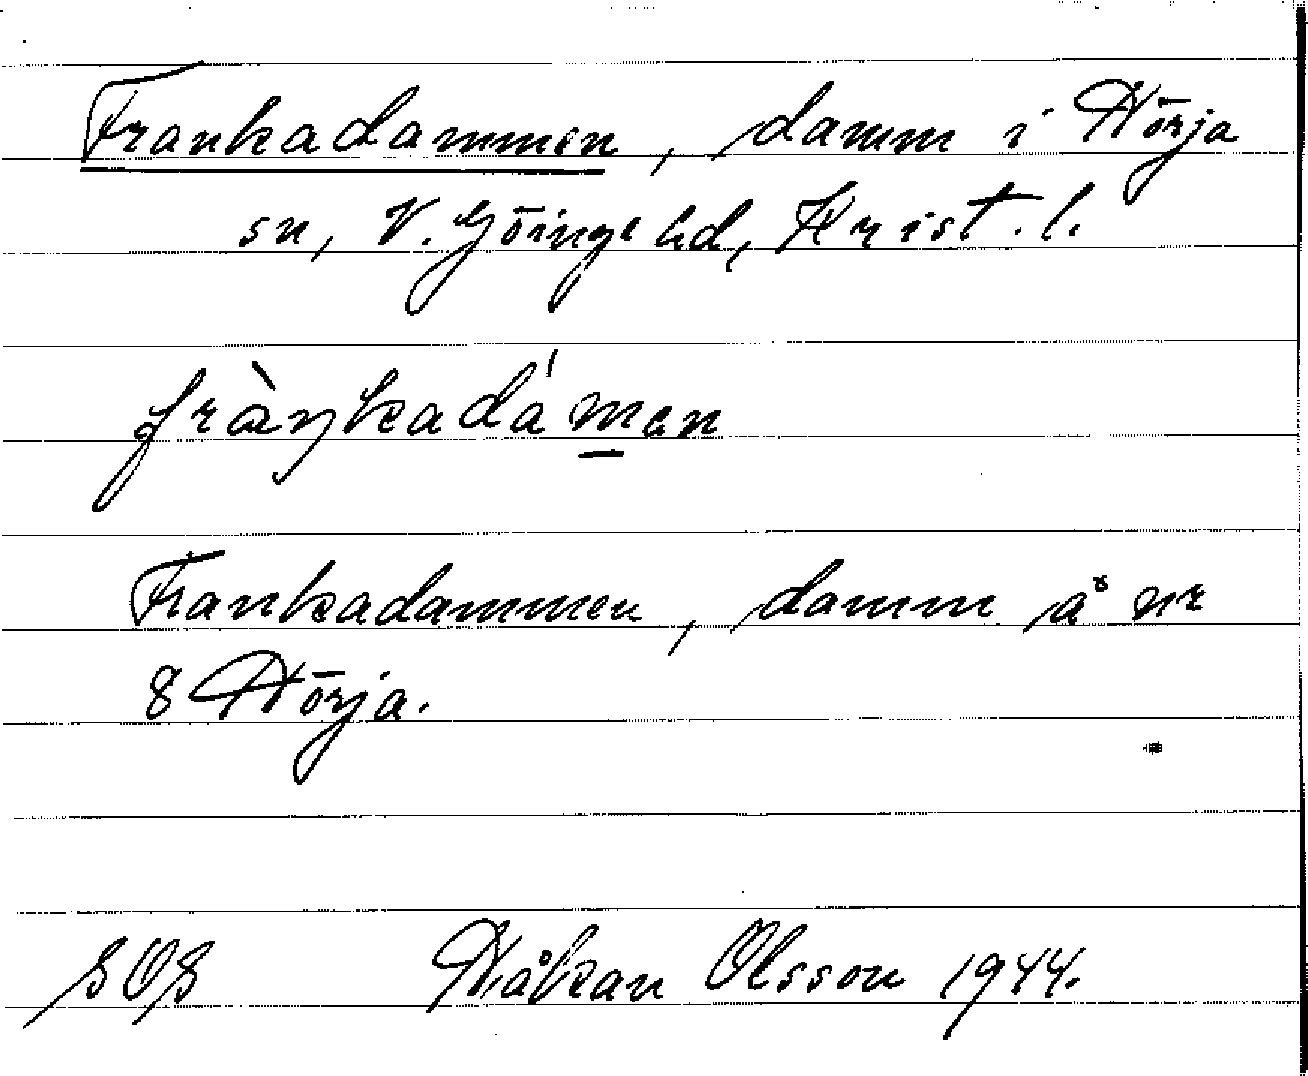 Frankadammen, damm i Hörja
sn, V. Göinge hd, Krist. l.
fràŋkadá m̲an
Frankadammen, damm å nr
8 Hörja.
SOS Håkan Olsson 1944.